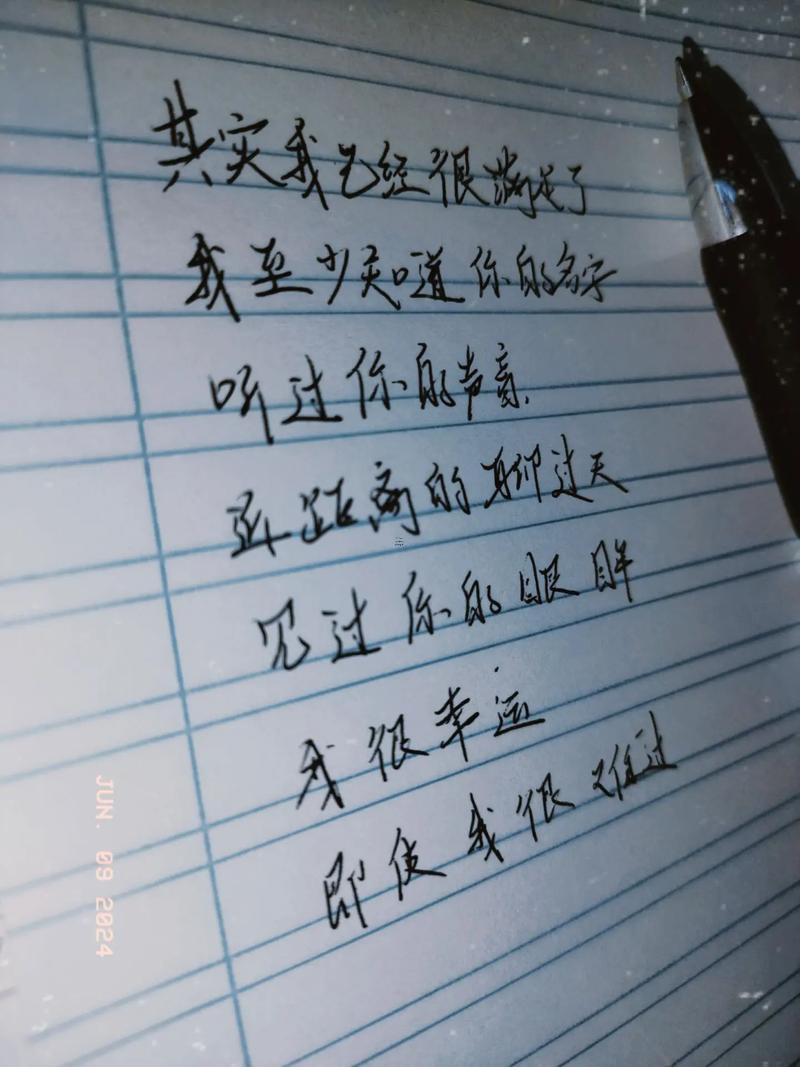 其实我已经很满足了
我至少知道你的名字
听过你的声音
近距离的聊过天
见过你的眼眸
我很幸运
即使我很难过
JUN. 09 2024